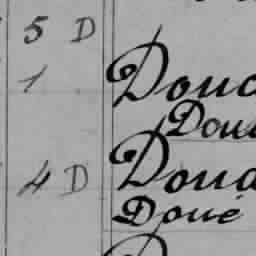 5 D
1 Douc
Doue
4 D Doua
Doué